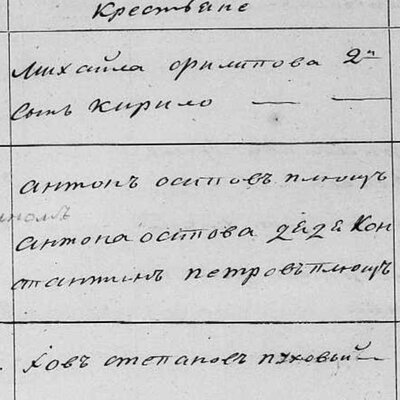 Крестьяне
Михайла Филипова 2й
сынъ Кирило
Антонъ Осиповъ Плющъ
Антона Осипова дядя Кон
стантинъ Петровъ Плющъ
Ховъ Степановъ Пуховый